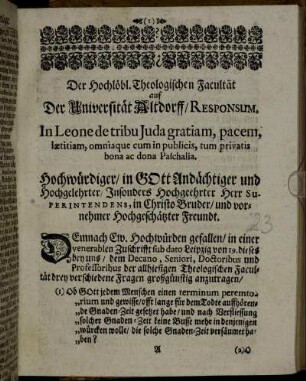 (1)
Der Hochlöbl. Theologischen Facultät
auf
Der Universität Altdorff/ RESPONSUM.
In Leone de tribu Juda gratiam, pacem,
lætitiam, omniaque cum in publicis, tum privatis
bona ac dona Paschalia.
Hochwürdiger/ in GOtt Andächtiger und
Hochgelehrter/ Insonders Hochgeehrter Herr SU-
PERINTENDENS, in Christo Bruder/ und vor-
nehmer Hochgeschätzter Freund.
23
DEmnach Ew. Hochwürden gefallen/ in einer
venerablen Zuschrifft sub dato Leipzig von 19. dieses
bey uns/ dem Decano, Seniori, Doctoribus und
Professoribus der allhiesigen Theologischen Facul-
tät drey verschiedene Fragen großgünstig anzutragen/
(1) Ob GOtt jedem Menschen einen terminum peremto-
rium und gewisse/ offt lange für dem Tode auffhörete
de Gnaden-Zeit gesetzet habe/ und nach Verfliessung
solcher Gnaden-Zeit keine Busse mehr in denjenigen
würcken wolle/ die solche Gnaden-Zeit versäumet ha-
ben?
A (2) O